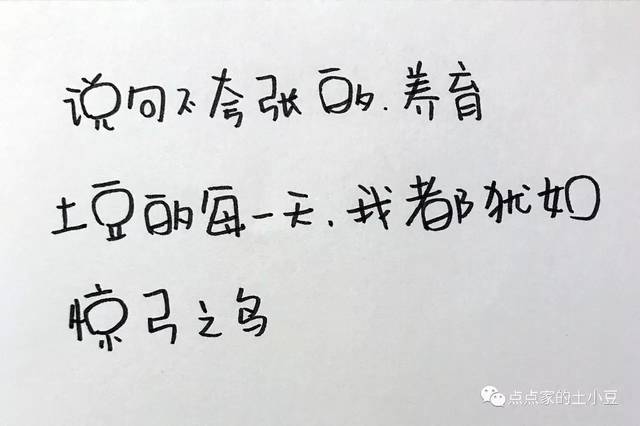 说句不夸张的.养育
土豆的每一天.我都犹如
惊弓之鸟
点点家的土小豆